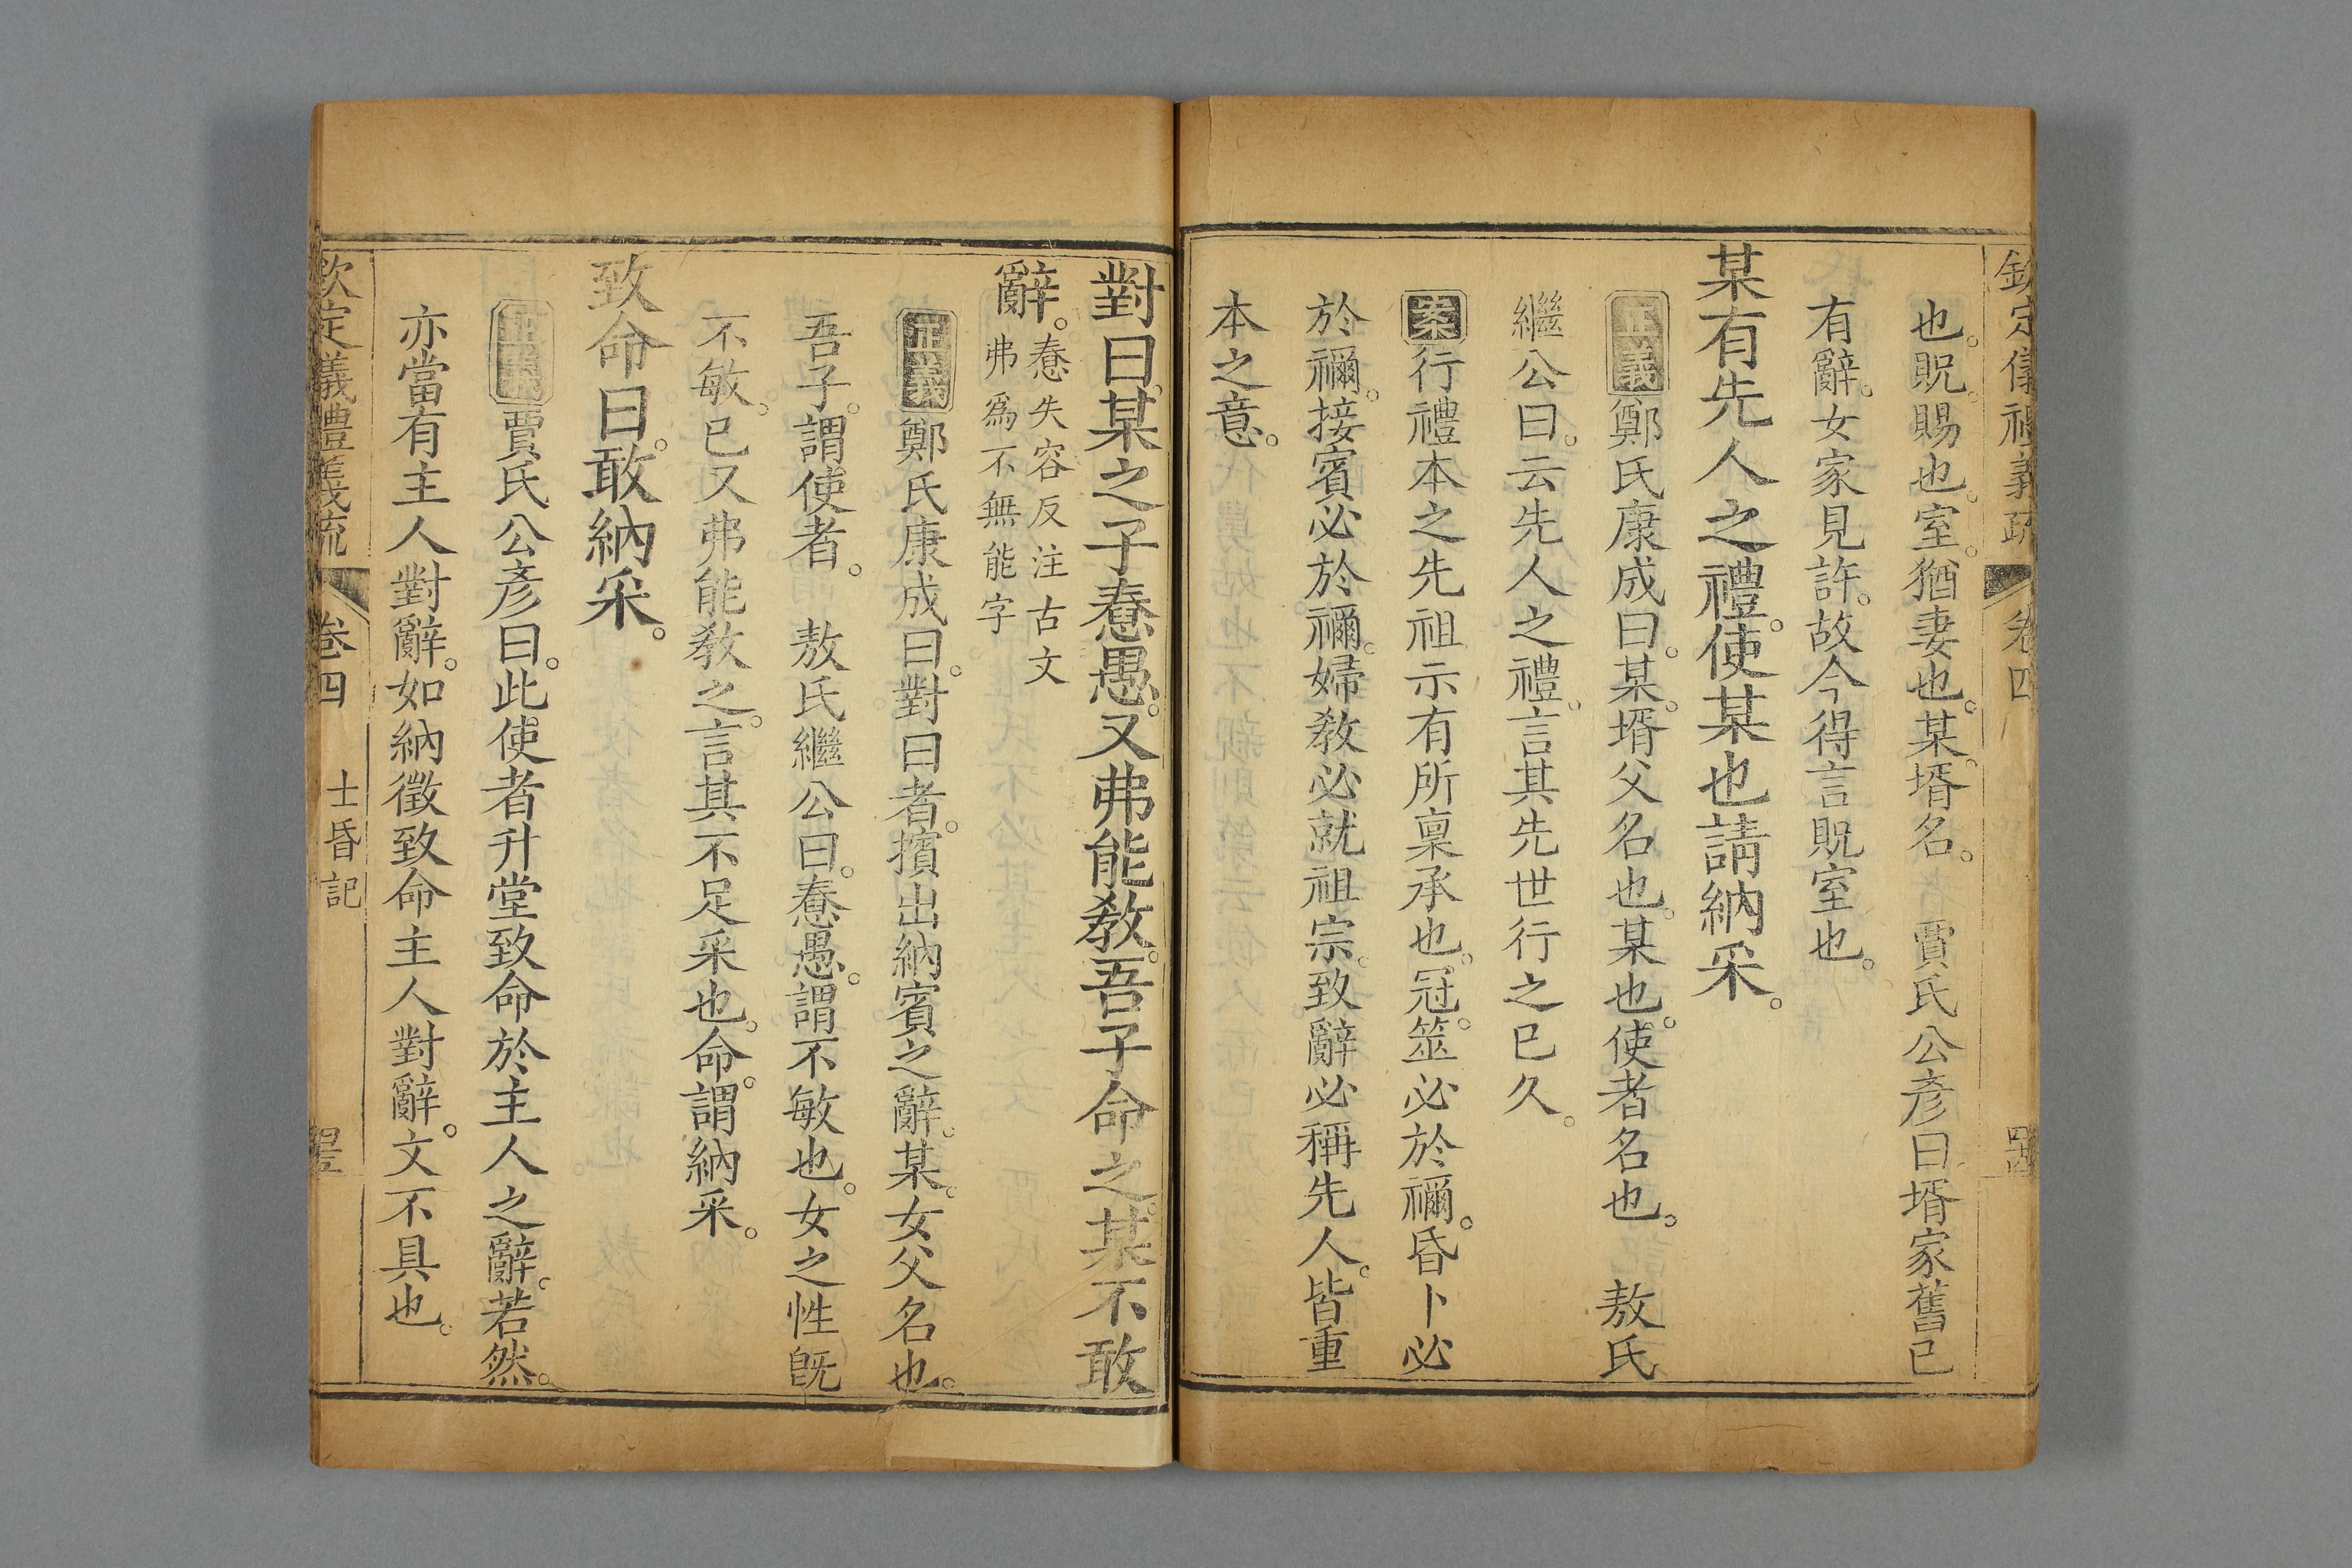 欽定儀禮義疏 卷四 四四
也。貺。賜也。室。猶妻也。某。壻名。 賈氏公彥曰。壻家舊已
有辭。女家見許。故今得言貺室也。
某有先人之禮。使某也請納采。
正義鄭氏康成曰。某。壻父名也。某也。使者名也。 敖氏
繼公曰。云先人之禮。言其先世行之已久。
案行禮本之先祖示有所稟承也。冠。筮必於禰。昏卜必
於禰。接賓必於禰。婦教必就祖宗。致辭必稱先人。皆重
本之意。
對曰。某之子惷愚。又弗能教。吾子命之。某不敢
辭。惷失容反注古文
弗為不無能字
正義鄭氏康成曰。對曰者。擯出納賓之辭。某。女父名也。
吾子。謂使者。 敖氏繼公曰。惷愚。謂不敏也。女之性既
不敏。已又弗能教之。言其不足采也。命。謂納采。
致命曰。敢納采。
正義賈氏公彥曰。此使者升堂致命於主人之辭。若然。
亦當有主人對辭。如納徵致命主人對辭。文不具也。
欽定儀禮義疏 卷四 士昏記